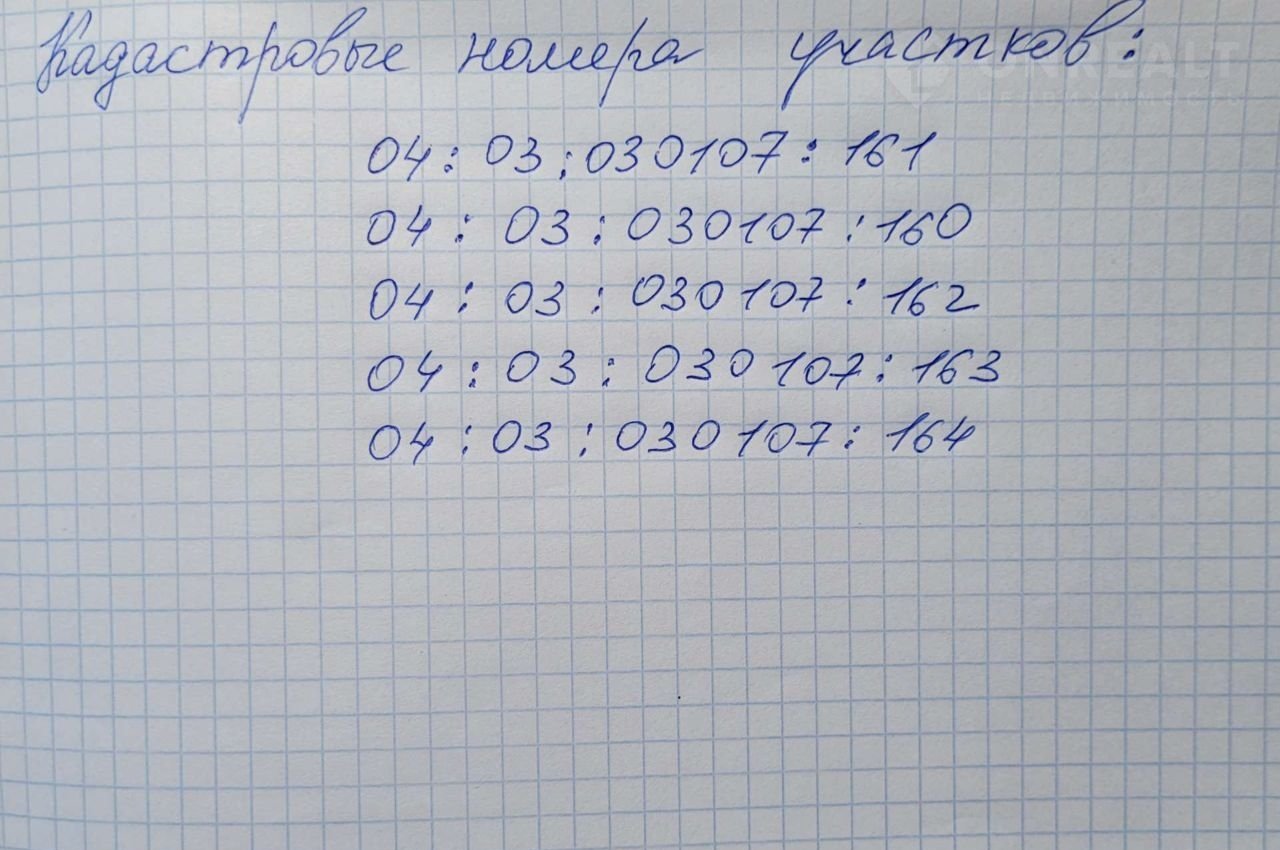 Кадастровые номера участков:
UNREALT
НЕДВИЖИМОСТЬ
04:03:030107:161
04:03:030107:160
04:03:030107:162
04:03:030107:163
04:03:030107:164